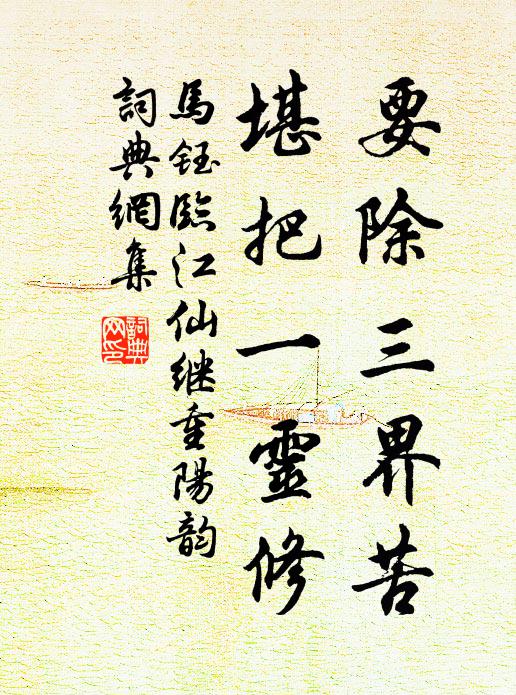 要除三界苦
堪把一靈修
馬鈺臨江仙继重陽韵
詞典網集
詞典网印